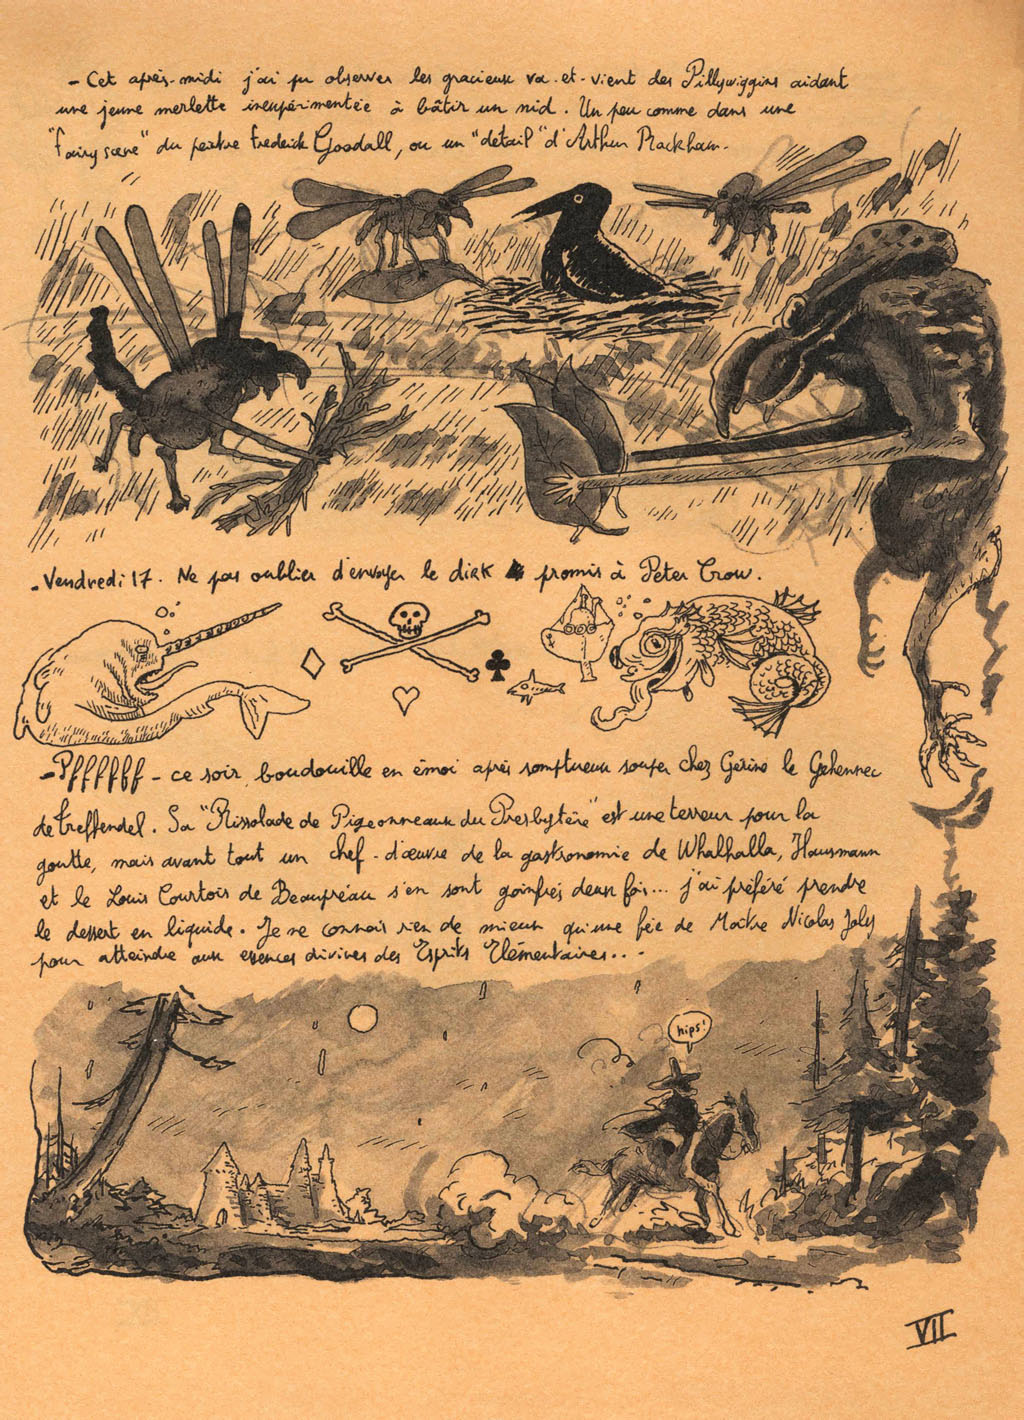 - Cet après-midi j'ai pu observer les gracieux va-et-vient des Pillywiggins aidant
une jeune merlette inexpérimentée à bâtir un nid. Un peu comme dans une
"fairy scene" du peintre Frederick Goodall, ou un "détail" d'Arthur Rackham.
- Vendredi 17. Ne pas oublier d'envoyer le dirk promis à Peter Crow.
- Pfffffff - ce soir, boudouille en émoi après somptueux souper chez Gerino le Gehennec
de Treffendel. Sa "Rissolade de Pigeonneaux du Presbytère" est une terreur pour la
goutte, mais avant tout un chef-d'œuvre de la gastronomie de Whalhalla, Hausmann
et le Louis Courtois de Beaupréau s'en sont goinfrés deux fois... j'ai préféré prendre
le dessert en liquide. Je ne connais rien de mieux qu'une fée de Maître Nicolas Joly
pour atteindre aux essences divines des Esprits Élémentaires...
hips!
VII